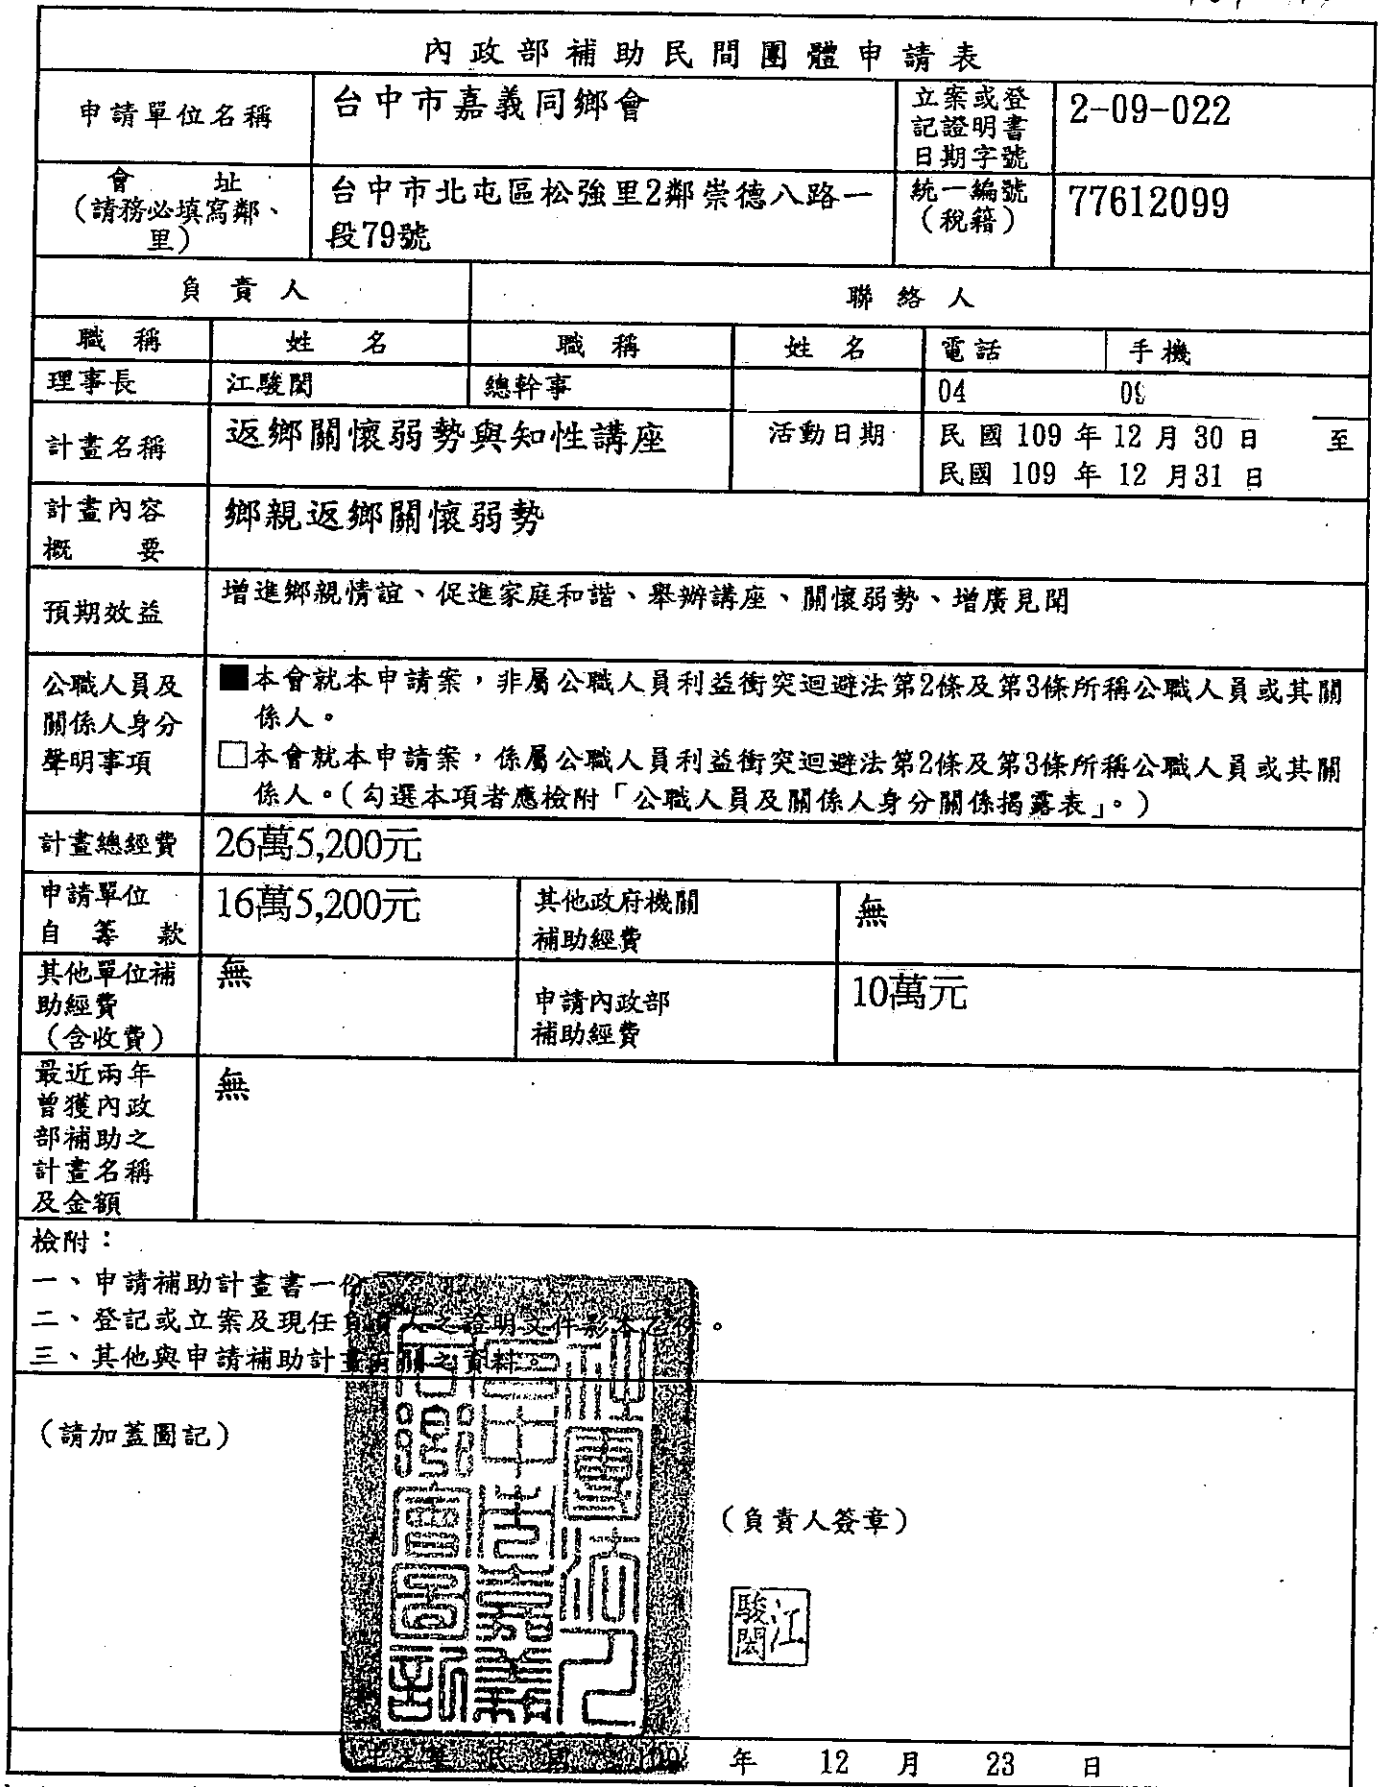 內政部補助民間團體申請表
申請單位名稱 台中市嘉義同鄉會 立案或登記證明書日期字號 2-09-022
會 址
(請務必填寫鄰、里)
台中市北屯區松強里2鄰崇德八路一
段79號
統一編號
(稅籍)
77612099
負責人 聯絡人
職稱 姓名 職稱 姓名 電話 手機
理事長 江駿閎 總幹事 04 09
計畫名稱 返鄉關懷弱勢與知性講座 活動日期 民國 109 年 12 月 30 日 至
民國 109 年 12 月31 日
計畫內容
概 要
鄉親返鄉關懷弱勢
預期效益 增進鄉親情誼、促進家庭和諧、舉辦講座、關懷弱勢、增廣見聞
公職人員及
關係人身分
聲明事項
■本會就本申請案，非屬公職人員利益衝突迴避法第2條及第3條所稱公職人員或其關
係人。
□本會就本申請案，係屬公職人員利益衝突迴避法第2條及第3條所稱公職人員或其關
係人。(勾選本項者應檢附「公職人員及關係人身分關係揭露表」。)
計畫總經費 26萬5,200元
申請單位
自 籌 款
16萬5,200元
其他政府機關
補助經費
無
其他單位補
助經費
(含收費)
無
申請內政部
補助經費
10萬元
最近兩年
曾獲內政
部補助之
計畫名稱
及金額
無
檢附：
一、申請補助計畫書一份
二、登記或立案及現任負責人之證明文件影本乙份。
三、其他與申請補助計畫有關之資料。
(請加蓋圖記)
(負責人簽章)
江駿閎
中華民國 109 年 12 月 23 日